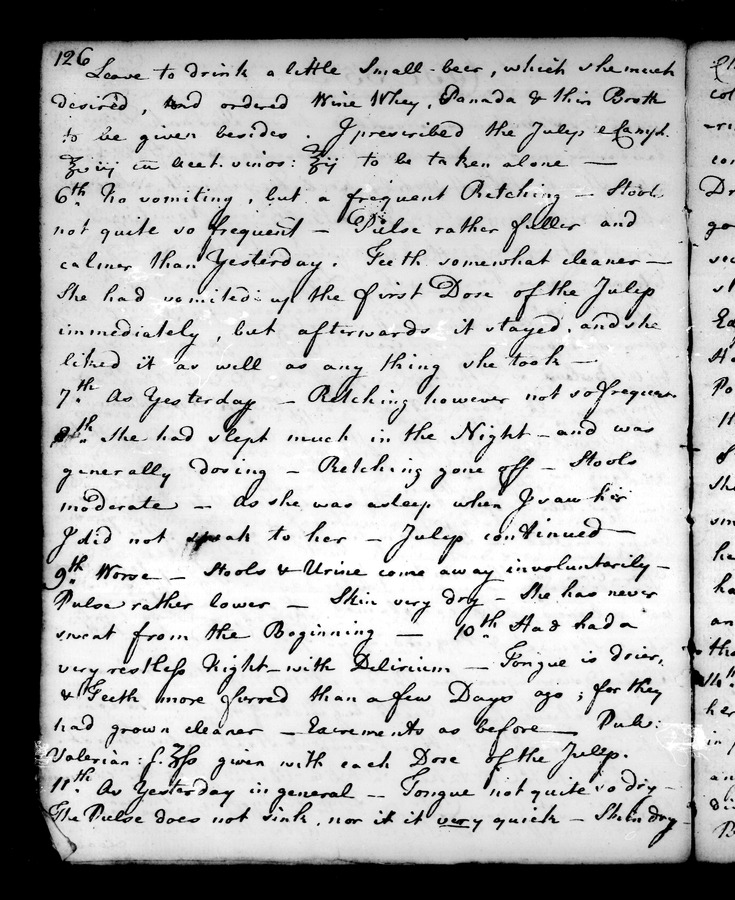 126
Leave to drink a little Small-beer, which she much
desired, and ordered Wine Whey, Panada & thin Broth
to be given besides. I prescribed the Julep e Camph.
℥vij cū Acet. vinos: ℥ij to be taken alone —
6th. No vomiting, but a frequent Retching — Stools
not quite so frequent — Pulse rather fuller and
calmer than Yesterday. Teeth somewhat cleaner —
She had vomited up the first Dose of the Julep
immediately, but afterwards it stayed, and she
liked it as well as any thing she took —
7.th As Yesterday — Retching however not so frequent
8th. She had slept much in the Night — and was
generally dosing — Retching gone off — Stools
moderate — As she was asleep when I saw her
I did not speak to her — Julep continued —
9th. Worse — Stools & Urine come away involuntarily —
Pulse rather lower — Skin very dry — She has never
sweat from the Beginning — 10th. Had had a
very restless Night — with Delirium — Tongue is drier,
& Teeth more furred than a few Days ago; for they
had grown cleaner — Excrements as before — Pulv:
Valerian: f. ℥ss given with each Dose of the Julep.
11.th As Yesterday in general — Tongue not quite so dry —
The Pulse does not sink, nor is it very quick — Skin dry —